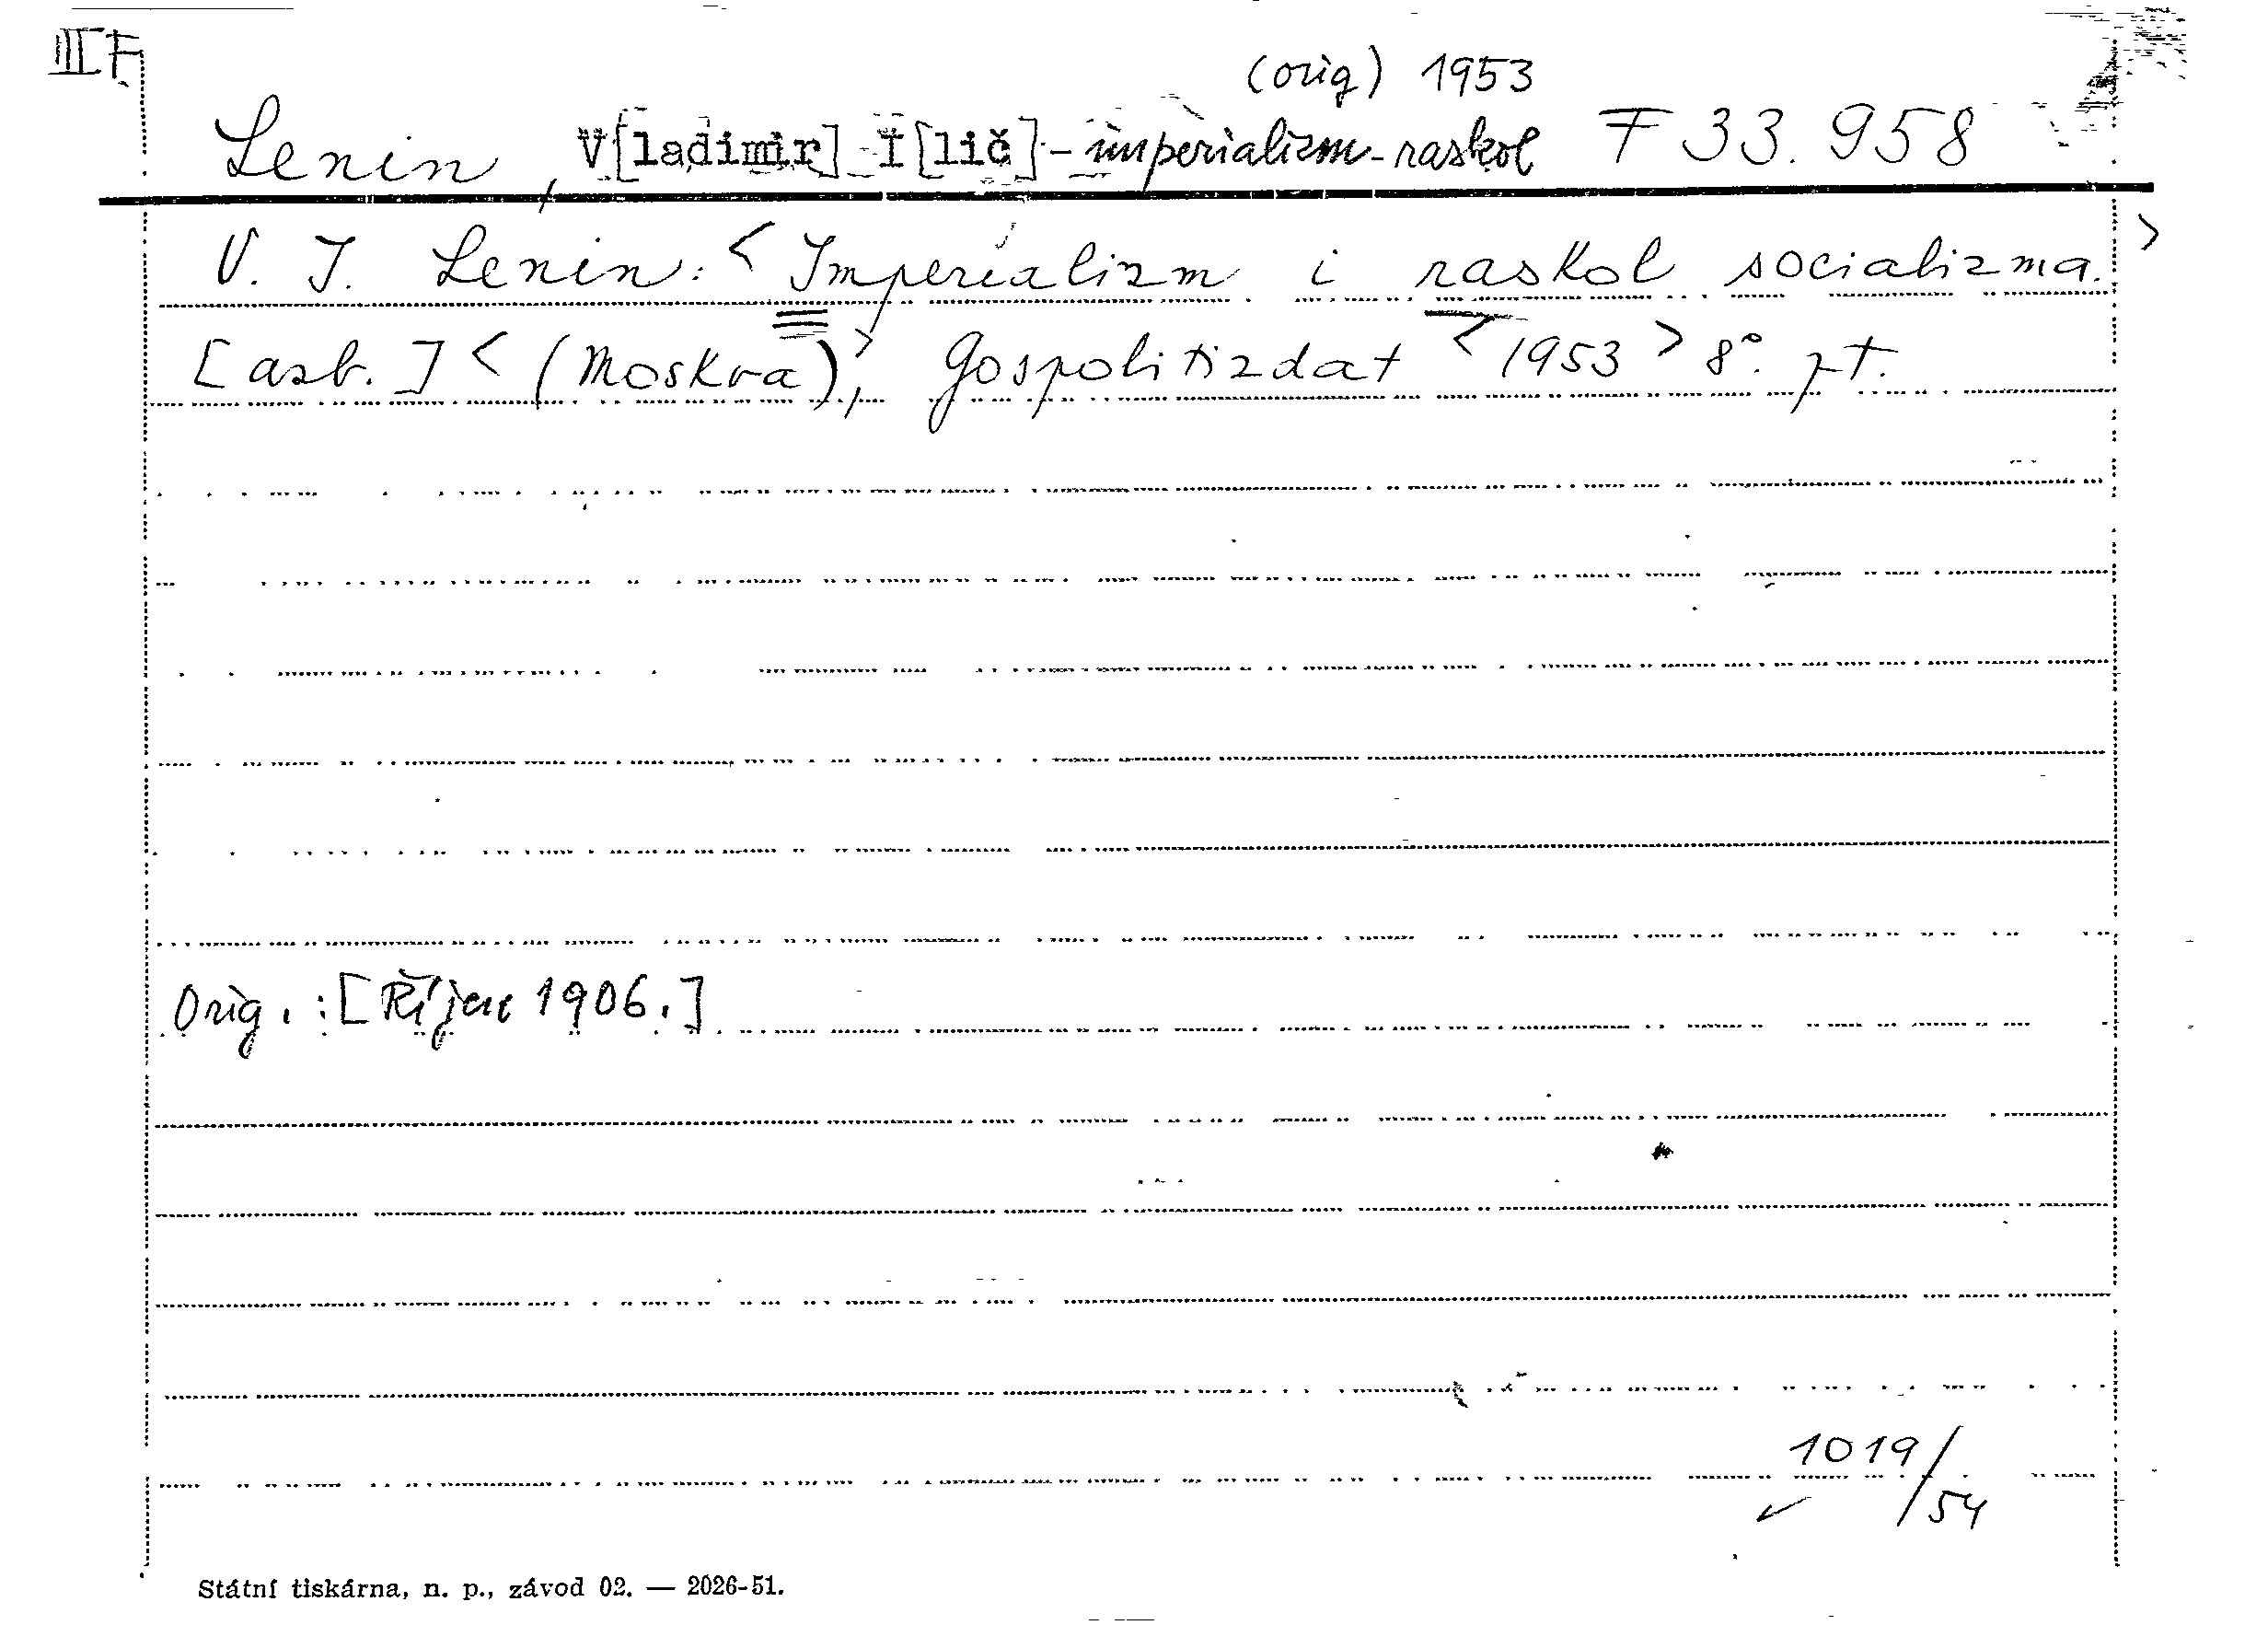 III F
(orig) 1953
Lenin, V[ladimir] I[lič] - imperializm - raskol F 33.958
V. I. Lenin: <Imperializm i raskol socializma.>
[azb.] <(Moskva)>, Gospolitizdat <1953> 8°. pt.
Orig.: [Říjen 1906.]
1019/54
Státní tiskárna, n. p., závod 02. — 2026-51.